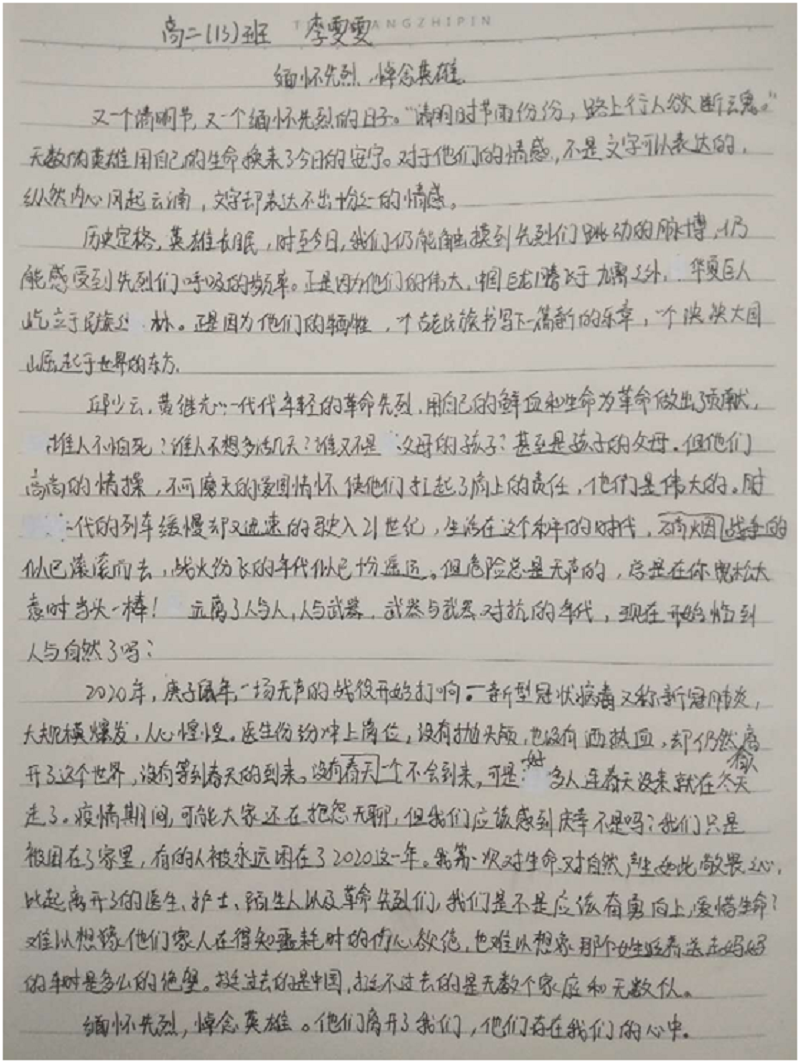 高二(13)班 李雯雯 T ANGZHIPIN
缅怀先烈,悼念英雄
又一个清明节,又一个缅怀先烈的日子。“清明时节雨份份,路上行人欲断魂。”
无数的英雄用自己的生命换来了今日的安宁。对于他们的情感,不是文字可以表达的,
纵然内心风起云涌,文字却表达不出十分之一的情感。
历史定格,英雄长眠,时至今日,我们仍能触摸到先烈们跳动的脉博,仍
能感受到先烈们呼吸的频率。正是因为他们的伟大,中国巨龙腾飞于九霄之外,华夏巨人
屹立于民族之林。正是因为他们的牺牲,一个古老民族书写下一篇新的乐章,一个泱泱大国
崛起于世界的东方。
邱少云,黄继光…一代代年轻的革命先烈,用自己的鲜血和生命为革命做出了贡献,
谁人不怕死?谁人不想多活几天?谁又不是父母的孩子?甚至是孩子的父母。但他们
高尚的情操,不可磨灭的爱国情怀使他们扛起了肩上的责任,他们是伟大的。时
代的列车缓慢却又迅速的驶入21世纪,生活在这个和平的时代,硝烟战争的
似已滚滚而去,战火纷飞的年代似已十份遥远。但危险总是无声的,总是在你松大
意时当头一棒!远离了人与人,人与武器,武器与武器对抗的年代,现在开始轮到
人与自然了吗?
2020年,庚子鼠年,一场无声的战役开始打响。一新型冠状病毒又称新冠肺炎,
大规模爆发,人心惶惶。医生份纷冲上岗位,没有抛头颅,也没有洒热血,却仍然离
开了这个世界,没有等到春天的到来。没有春天一个不会到来,可是好多人连春天没来就在冬天
走了。疫情期间,可能大家还在抱怨无聊,但我们应该感到庆幸不是吗?我们只是
被困在了家里,有的人被永远困在了2020这一年。我第一次对生命对自然产生如此敬畏之心,
比起离开了的医生、护士、陌生人以及革命先烈们,我们是不是应该有勇向上,爱惜生命?
难以想像他们家人在得知噩耗时的伤心欲绝,也难以想象那个女生追着送走妈妈
的车时是多么的绝望。挺过去的是中国,挺不过去的是无数个家庭和无数人。
缅怀先烈,悼念英雄。他们离开了我们,他们存在我们的心中。